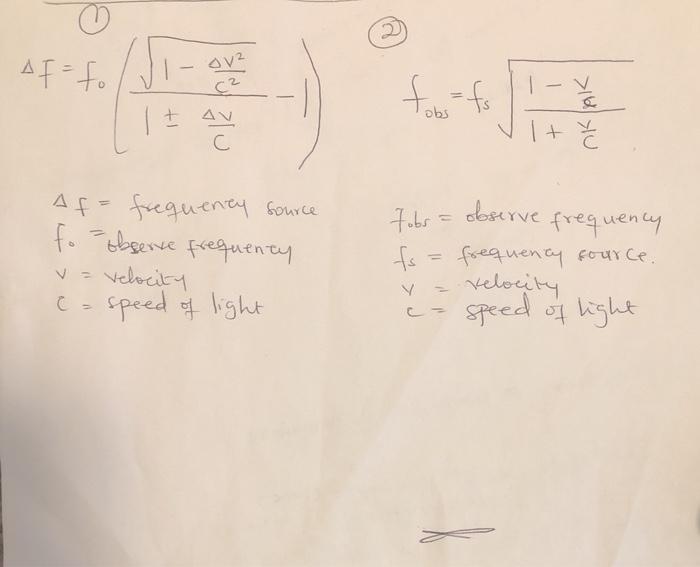 ①
Δf = f₀ ( √(1 - ΔV²/C²) / (1 ± ΔV/C) - 1 )
Δf = frequency source
f₀ = observe frequency
v = velocity
C = speed of light
②
f obs = fs √((1 - V/c) / (1 + V/C))
fobs = observe frequency
fs = frequency source.
v = velocity
c = speed of light